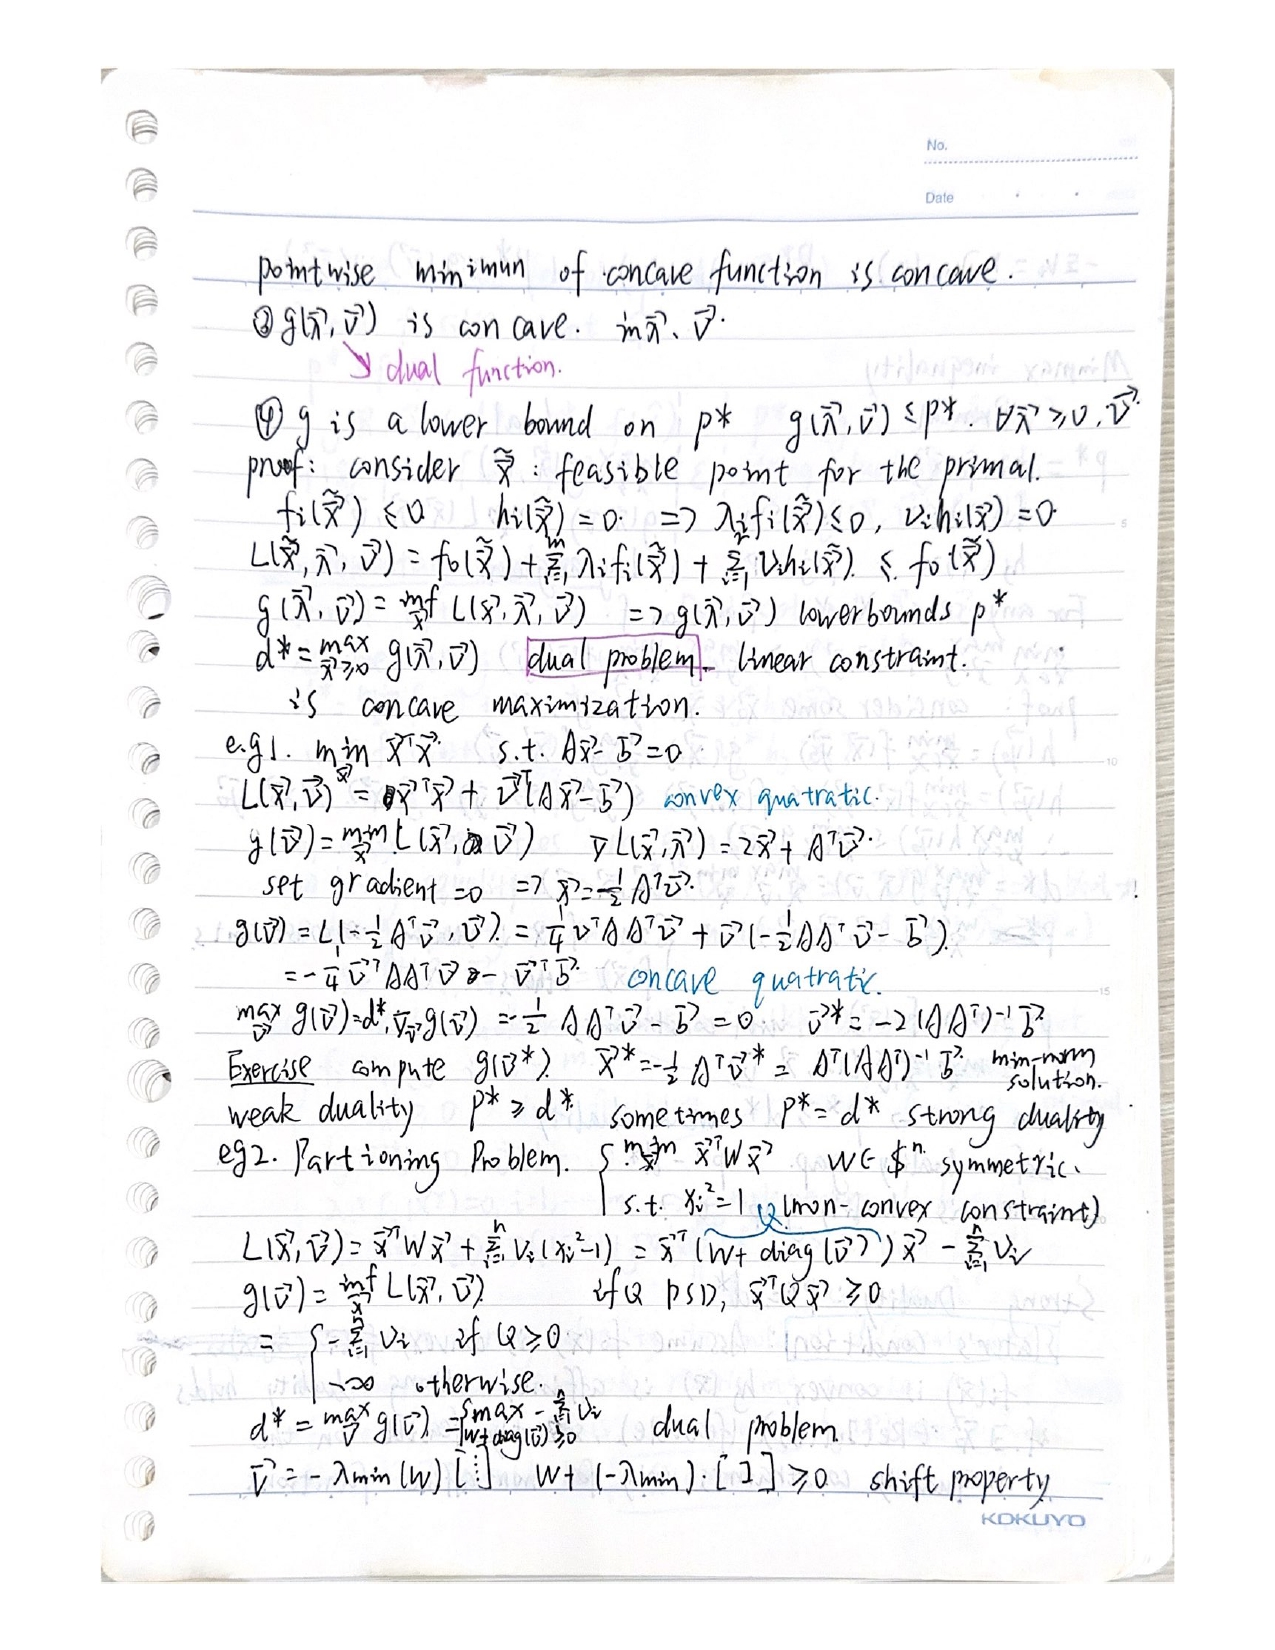 No.
Date
pointwise minimun of concave function is concave.
③ g(λ⃗, ν⃗) is concave. in λ⃗, ν⃗.
↘ dual function.
④ g is a lower bound on p* g(λ⃗, ν⃗) ≤ p*. ∀λ⃗ ≥ 0, ν⃗.
proof: consider x̃⃗ : feasible point for the primal.
fi(x̃⃗) ≤ 0 hi(x̃⃗) = 0. => λifi(x̃⃗) ≤ 0, νihi(x⃗) = 0.
L(x̃⃗, λ⃗, ν⃗) = f0(x̃⃗) + Σ_{i=1}^{m} λifi(x̃⃗) + Σ_{i=1} νihi(x̃⃗). ≤ f0(x̃⃗)
g(λ⃗, ν⃗) = inf_{x⃗} L(x⃗, λ⃗, ν⃗) => g(λ⃗, ν⃗) lowerbounds p*
d* = max_{λ⃗≥0} g(λ⃗, ν⃗) dual problem. linear constraint.
is concave maximization.
e.g1. min_{x⃗} x⃗ᵀx⃗. s.t. Ax⃗ - b⃗ = 0
L(x⃗, ν⃗) = x⃗ᵀx⃗ + ν⃗ᵀ(Ax⃗ - b⃗) convex quatratic.
g(ν⃗) = min_{x⃗} L(x⃗, ν⃗) ∇L(x⃗, λ⃗) = 2x⃗ + Aᵀν⃗.
set gradient = 0 => x⃗ = -½Aᵀν⃗.
g(ν⃗) = L(-½Aᵀν⃗, ν⃗). = ¼νᵀAAᵀν⃗ + ν⃗(-½AAᵀν⃗ - b⃗).
= -¼ν⃗ᵀAAᵀν⃗ - ν⃗ᵀb⃗. concave quatratic.
max_{ν⃗} g(ν⃗) = d*. ∇_{ν⃗}g(ν⃗) = -½AAᵀν⃗ - b⃗ = 0. ν⃗* = -2(AAᵀ)⁻¹b⃗.
Exercise compute g(ν⃗*). x⃗* = -½Aᵀν⃗* = Aᵀ(AAᵀ)⁻¹b⃗. min-norm solution.
weak duality p* ≥ d*. sometimes p* = d* strong duality
eg2. Partioning Problem. { min_{x⃗} x⃗ᵀWx⃗ W∈$ⁿ. symmetric.
s.t. xi² = 1 (non-convex constraint)
Q
L(x⃗, ν⃗) = x⃗ᵀWx⃗ + Σ_{i=1}^{n} νi(xi²-1) = x⃗ᵀ(W + diag(ν⃗))x⃗ - Σ_{i=1}^{n} νi
g(ν⃗) = inf_{x⃗} L(x⃗, ν⃗). if Q PSD, x⃗ᵀQx⃗ ≥ 0
= { -Σ_{i=1}^{n} νi if Q ≥ 0.
-∞ otherwise.
d* = max_{ν} g(ν⃗) = { max - Σ_{i=1}^{n} νi dual problem.
W + diag(ν⃗) ≥ 0
ν⃗ = -λmin(W) [⋮] W + (-λmin)·[I] ≥ 0 shift property
KOKUYO